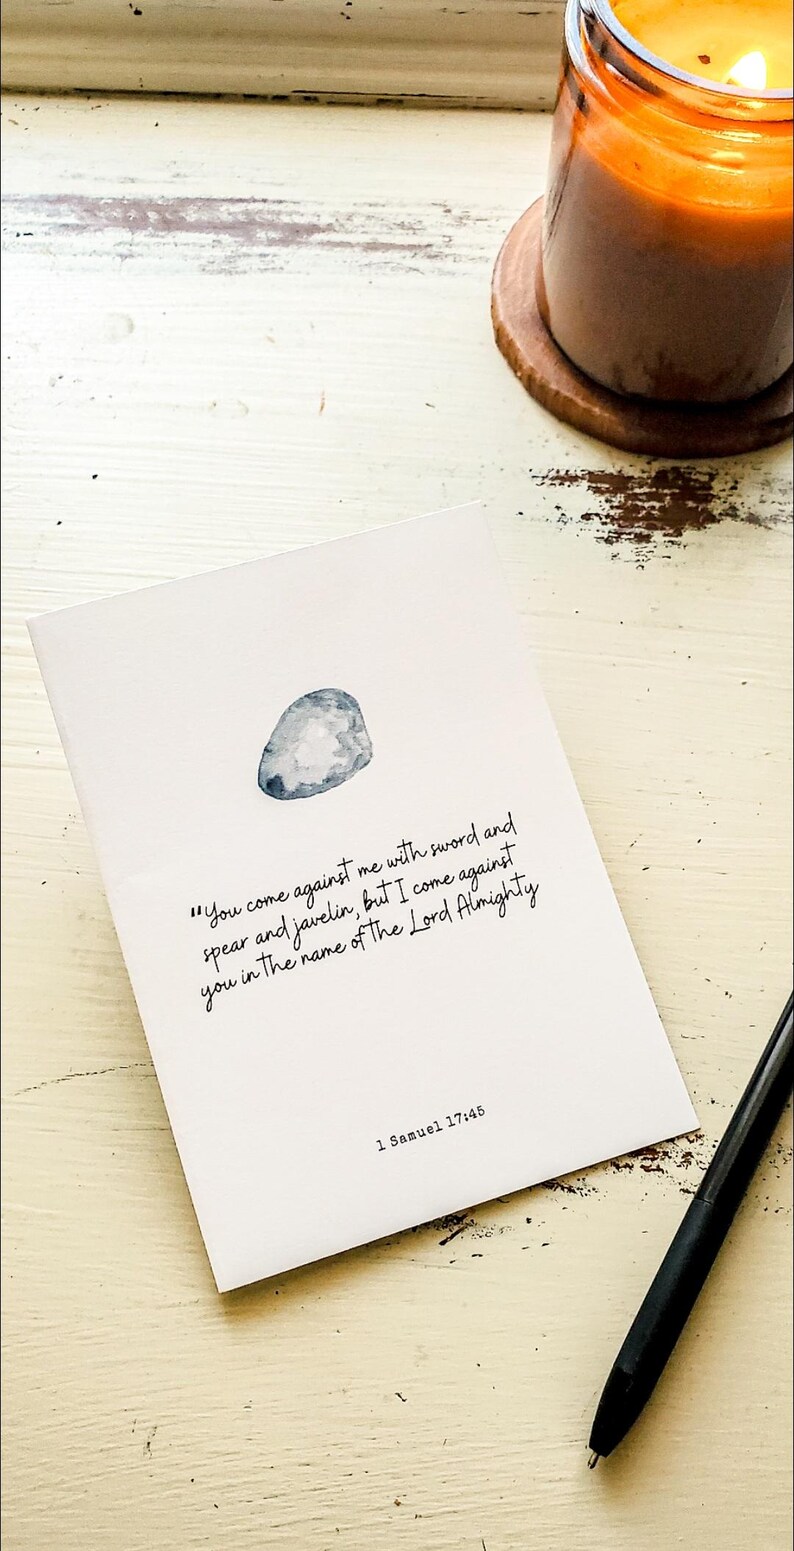 "You come against me with sword and
spear and javelin, but I come against
you in the name of the Lord Almighty
1 Samuel 17:45